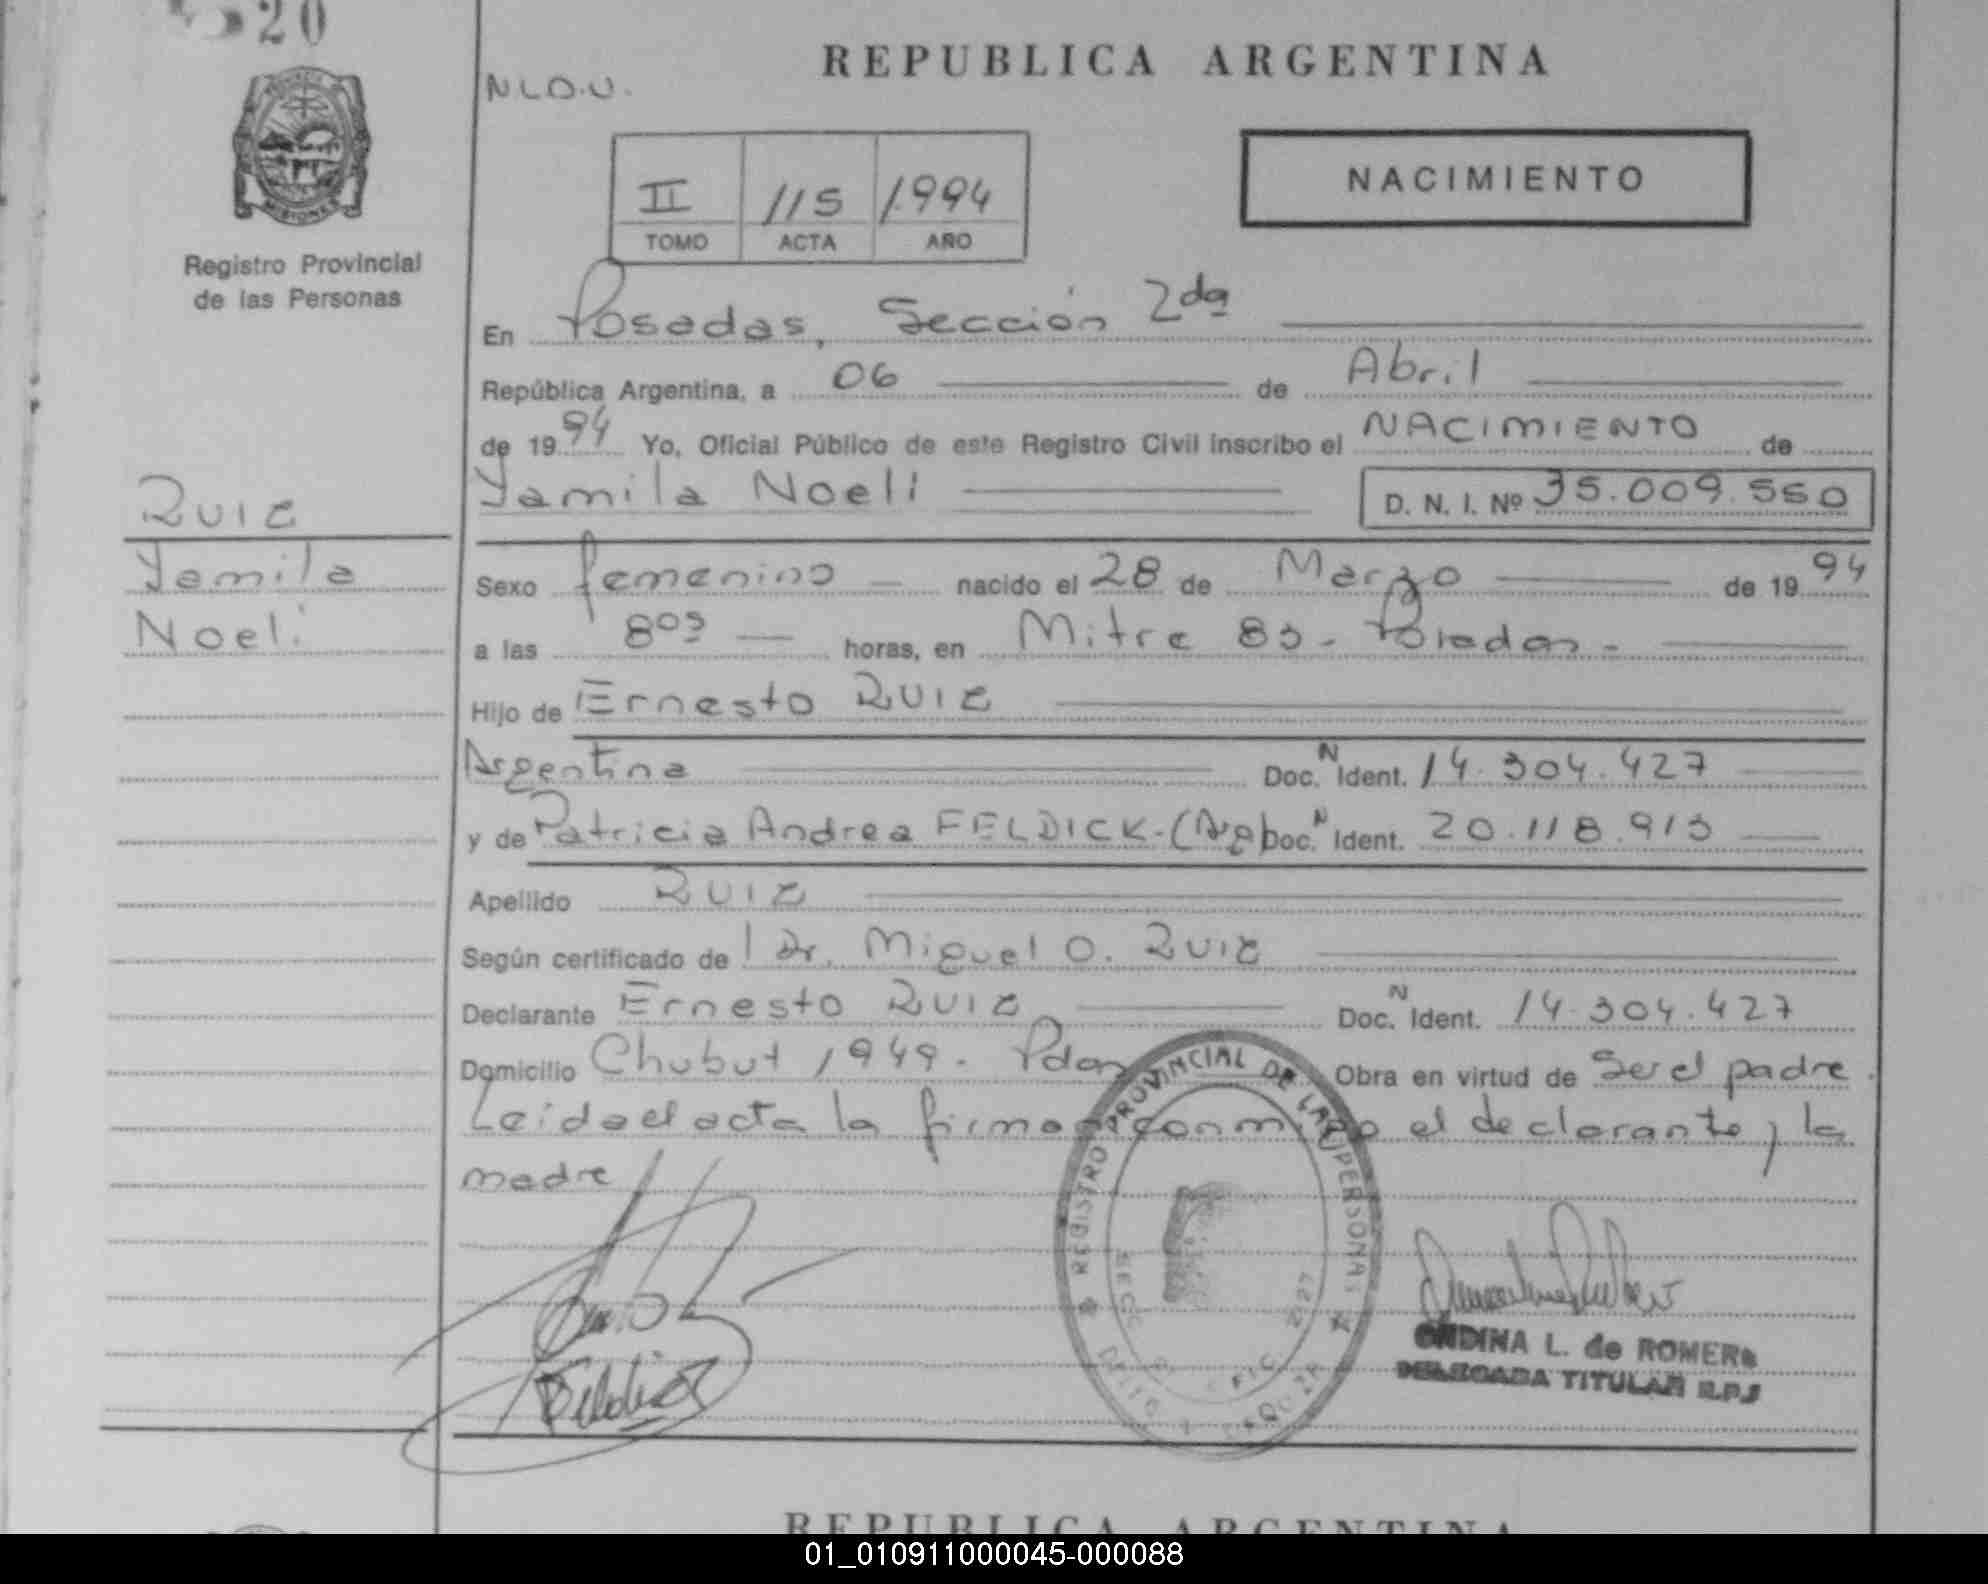 20
REPUBLICA ARGENTINA
N.L.O.U.
MISIONES
Registro Provincial
de las Personas
II 115 1994
TOMO ACTA AÑO
NACIMIENTO
En Posadas, Sección 2da
República Argentina, a 06 de Abril
de 1994 Yo, Oficial Público de este Registro Civil inscribo el NACIMIENTO de
Yamila Noeli D. N. I. Nº 35.009.550
Ruiz
Yamila
Noeli
Sexo femenino nacido el 28 de Marzo de 1994
a las 8:05 horas, en Mitre 83 - Posadas -
Hijo de Ernesto RUIZ
Argentina Doc. N Ident. 14.304.427
y de Patricia Andrea FELDICK - (Arg) Doc. N Ident. 20.118.913
Apellido RUIZ
Según certificado de l Dr. Miguel O. RUIZ
Declarante Ernesto RUIZ Doc. N Ident. 14.304.427
Domicilio Chubut 1949 - Pdas Obra en virtud de Ser el padre.
Leida el acta la firman conmigo el declarante y la
madre
REGISTRO PROVINCIAL DE LAS PERSONAS
ONDINA L. de ROMERO
DELEGADA TITULAR R.P.S
REPUBLICA ARGENTINA
01_010911000045-000088